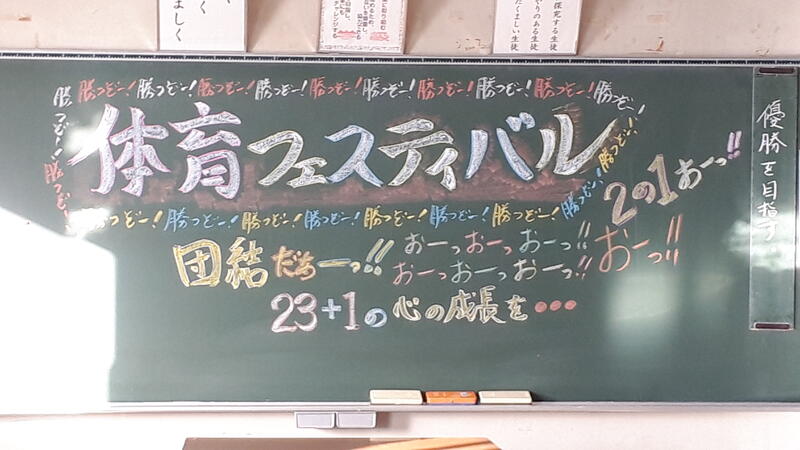 く
しく
探究する生徒
やりのある生徒
たくましい生徒
勝つぞー！勝つぞー！勝つぞー！勝つぞー！勝つぞー！勝つぞー！勝つぞー！勝つぞー！勝つぞー！勝つぞー！
勝つぞー！勝つぞー！
体育フェスティバル
勝つぞー！
勝つぞー！
2の1おーっ!!
つぞー！勝つぞー！勝つぞー！勝つぞー！勝つぞー！勝つぞー！勝つぞー！
団結だぁーっ!!
おーっおーっおーっ!!
おーっおーっおーっ!!
おーっ!!
23+1の心の成長を・・・
優勝を目指す